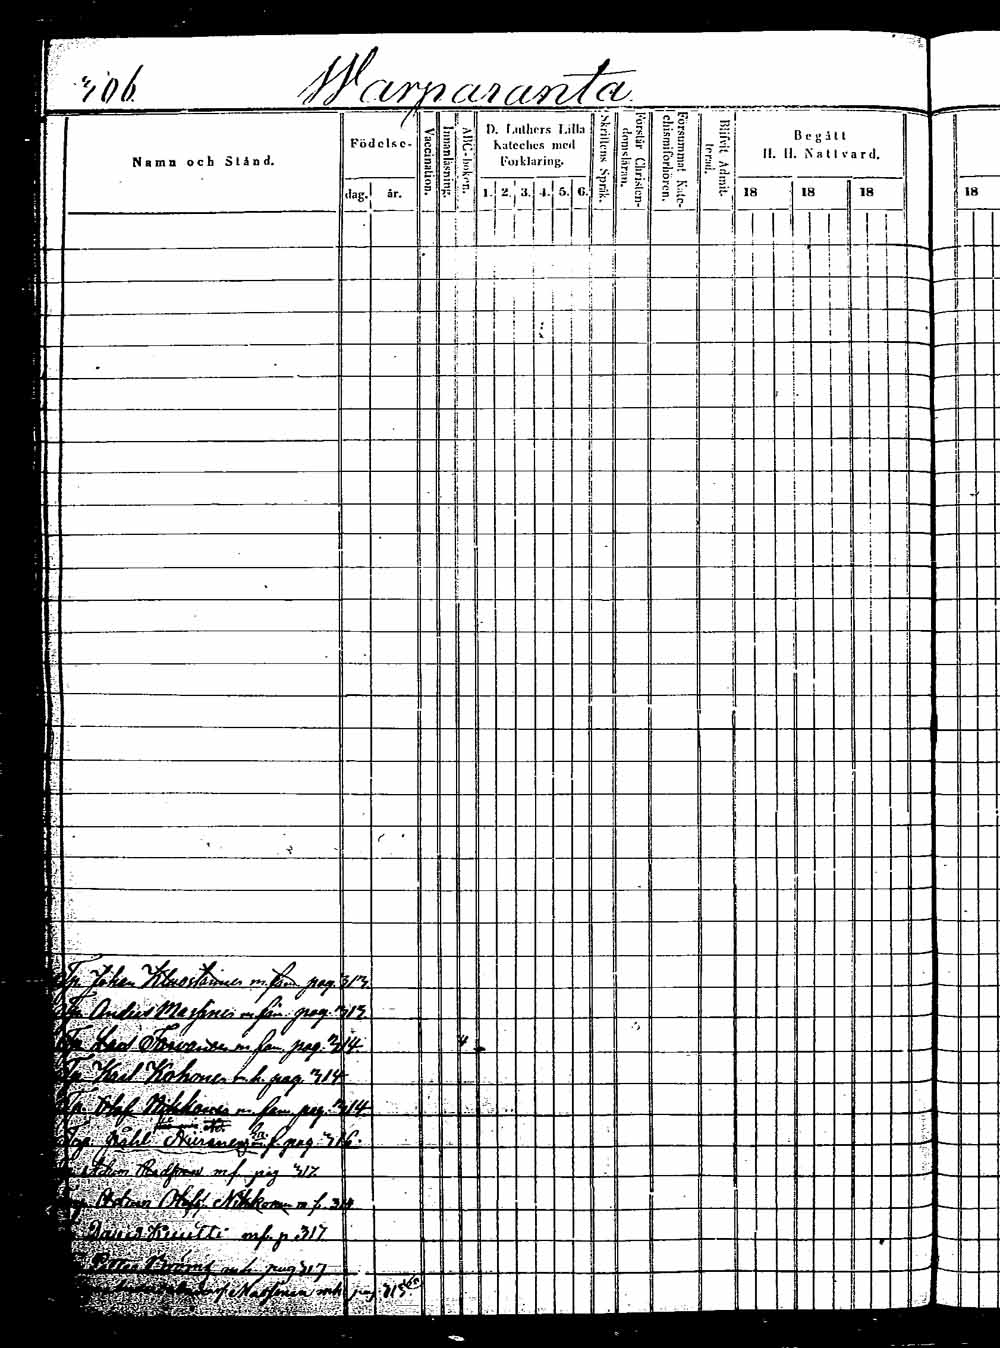 306.
Warparanta.
Namn och Stånd.
Födelse-
dag. år.
Vaccination.
Innanläsning.
ABC-boken.
D. Luthers Lilla
Kateches med
Förklaring.
1. 2. 3. 4. 5. 6.
Skriftens Språk.
Förstår Christen-
domsläran.
Försummat Kate-
chismiförhören.
Blifvit Admit-
terad.
Begått
H. H. Nattvard.
18 18 18
18
Johan m. fam. pag. 313.
Anders m. fam. pag. 313.
Lars m. fam. pag. 314.
4
Karl Kohonen m. h. pag. 314
Olof Nikkonen m. fam. pag. 314
Påhl Nieranen m. f. pag. 316.
Adam m. f. pag 317
Adam Olofsj. Nikkonen m. f. 314
David Knutti m. f. p. 317
Petter m. h. pag 317
m. h. pag. 315